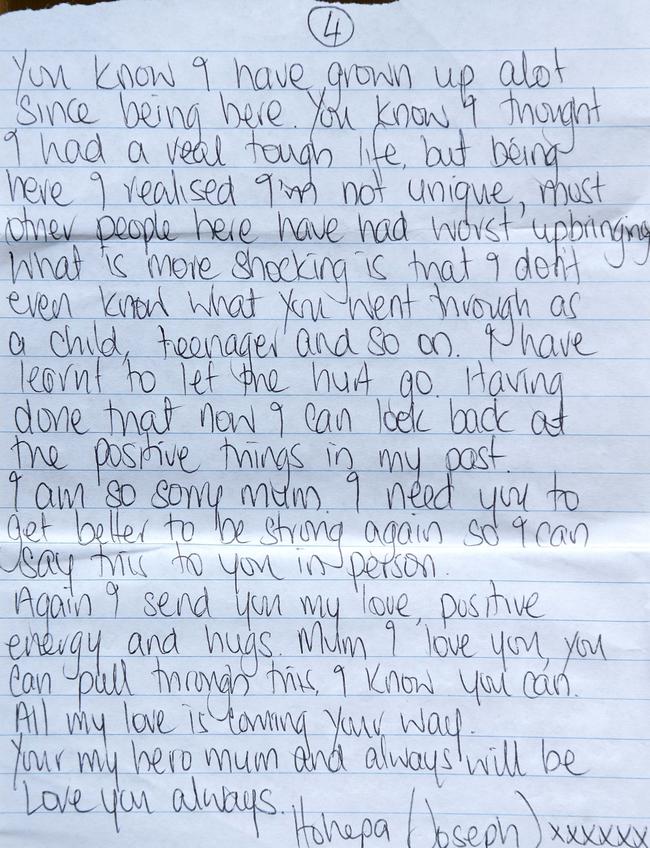 4
You know I have grown up alot
since being here. You know I thought
I had a real tough life, but being
here I realised I'm not unique, most
other people here have had worst upbringing
What is more shocking is that I don't
even know what you went through as
a child, teenager and so on. I have
learnt to let the hurt go. Having
done that now I can look back at
the positive things in my past.
I am so sorry mum. I need you to
get better to be strong again so I can
say this to you in person.
Again I send you my love, positive
energy and hugs. Mum I love you, you
can pull through this, I know you can.
All my love is coming your way.
Your my hero mum and always will be
Love you always.
Hohepa (Joseph) xxxxxx